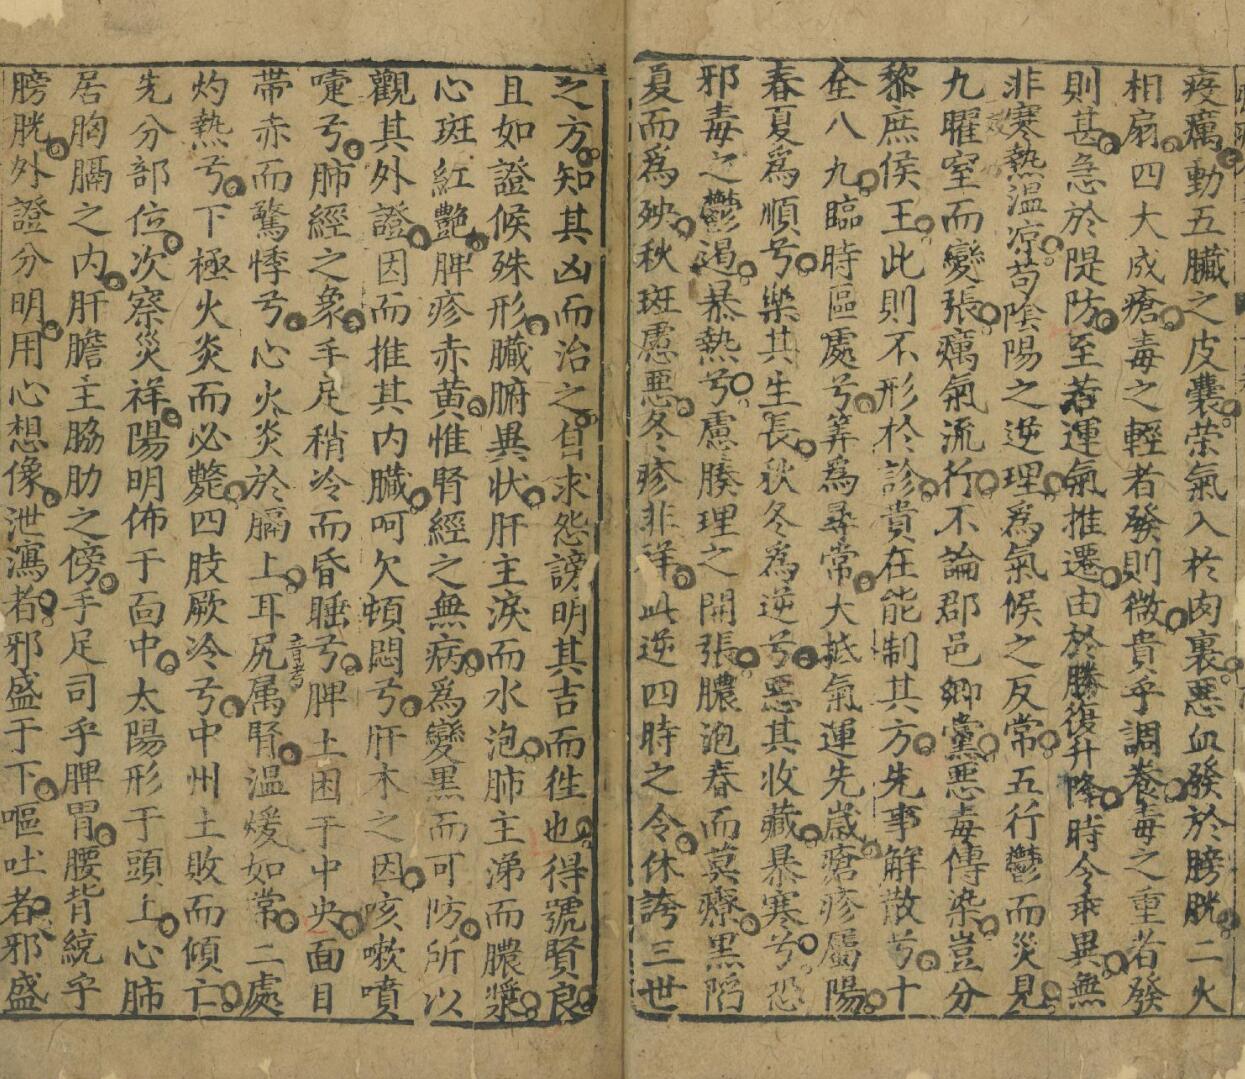 疫癘動五臟之皮囊荣氣入於肉裏惡血發於膀胱二火
相扇四大成瘡毒之輕者發則微貴乎調養毒之重者發
則甚急於隄防至若運氣推遷由於勝復升降時令乖異無
非寒熱温凉苟陰陽之逆理爲氣候之反常五行鬱而災見
九曜窒而變張癘氣流行不論郡邑鄉黨惡毒傳染豈分
黎庶侯王此則不形於診貴在能制其方先事解散兮十
全八九臨時區處兮筭爲尋常大抵氣運先歲瘡疹屬陽
春夏爲順兮樂其生長秋冬爲逆兮惡其收藏暴寒兮恐
邪毒之鬱遏暴熱兮慮腠理之開張膿泡春而莫療黑陷
夏而爲殃秋斑慮惡冬疹非祥此逆四時之令休誇三世
之方知其凶而治之自求怨謗明其吉而徃也得號賢良
且如證候殊形臟腑異状肝主淚而水泡肺主涕而膿漿
心斑紅艷脾疹赤黄惟腎經之無病爲變黑而可防所以
觀其外證因而推其内臟呵欠頓悶兮肝木之因咳嗽噴
嚏兮肺經之象手足稍冷而昏睡兮脾土困于中央面目
帶赤而驚悸兮心火炎於膈上耳尻属腎温煖如常二處
灼熱兮下極火炎而必斃四肢厥冷兮中州土敗而傾亡
先分部位次察災祥陽明佈于面中太陽形于頭上心肺
居胸膈之内肝膽主脇肋之傍手足司乎脾胃腰背統乎
膀胱外證分明用心想像泄瀉者邪盛于下嘔吐者邪盛